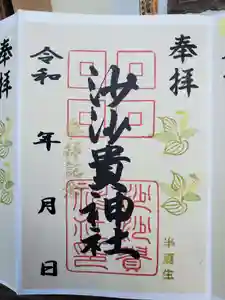 奉拝
沙沙貴神社
令和 年 月 日
半夏生
奉拝